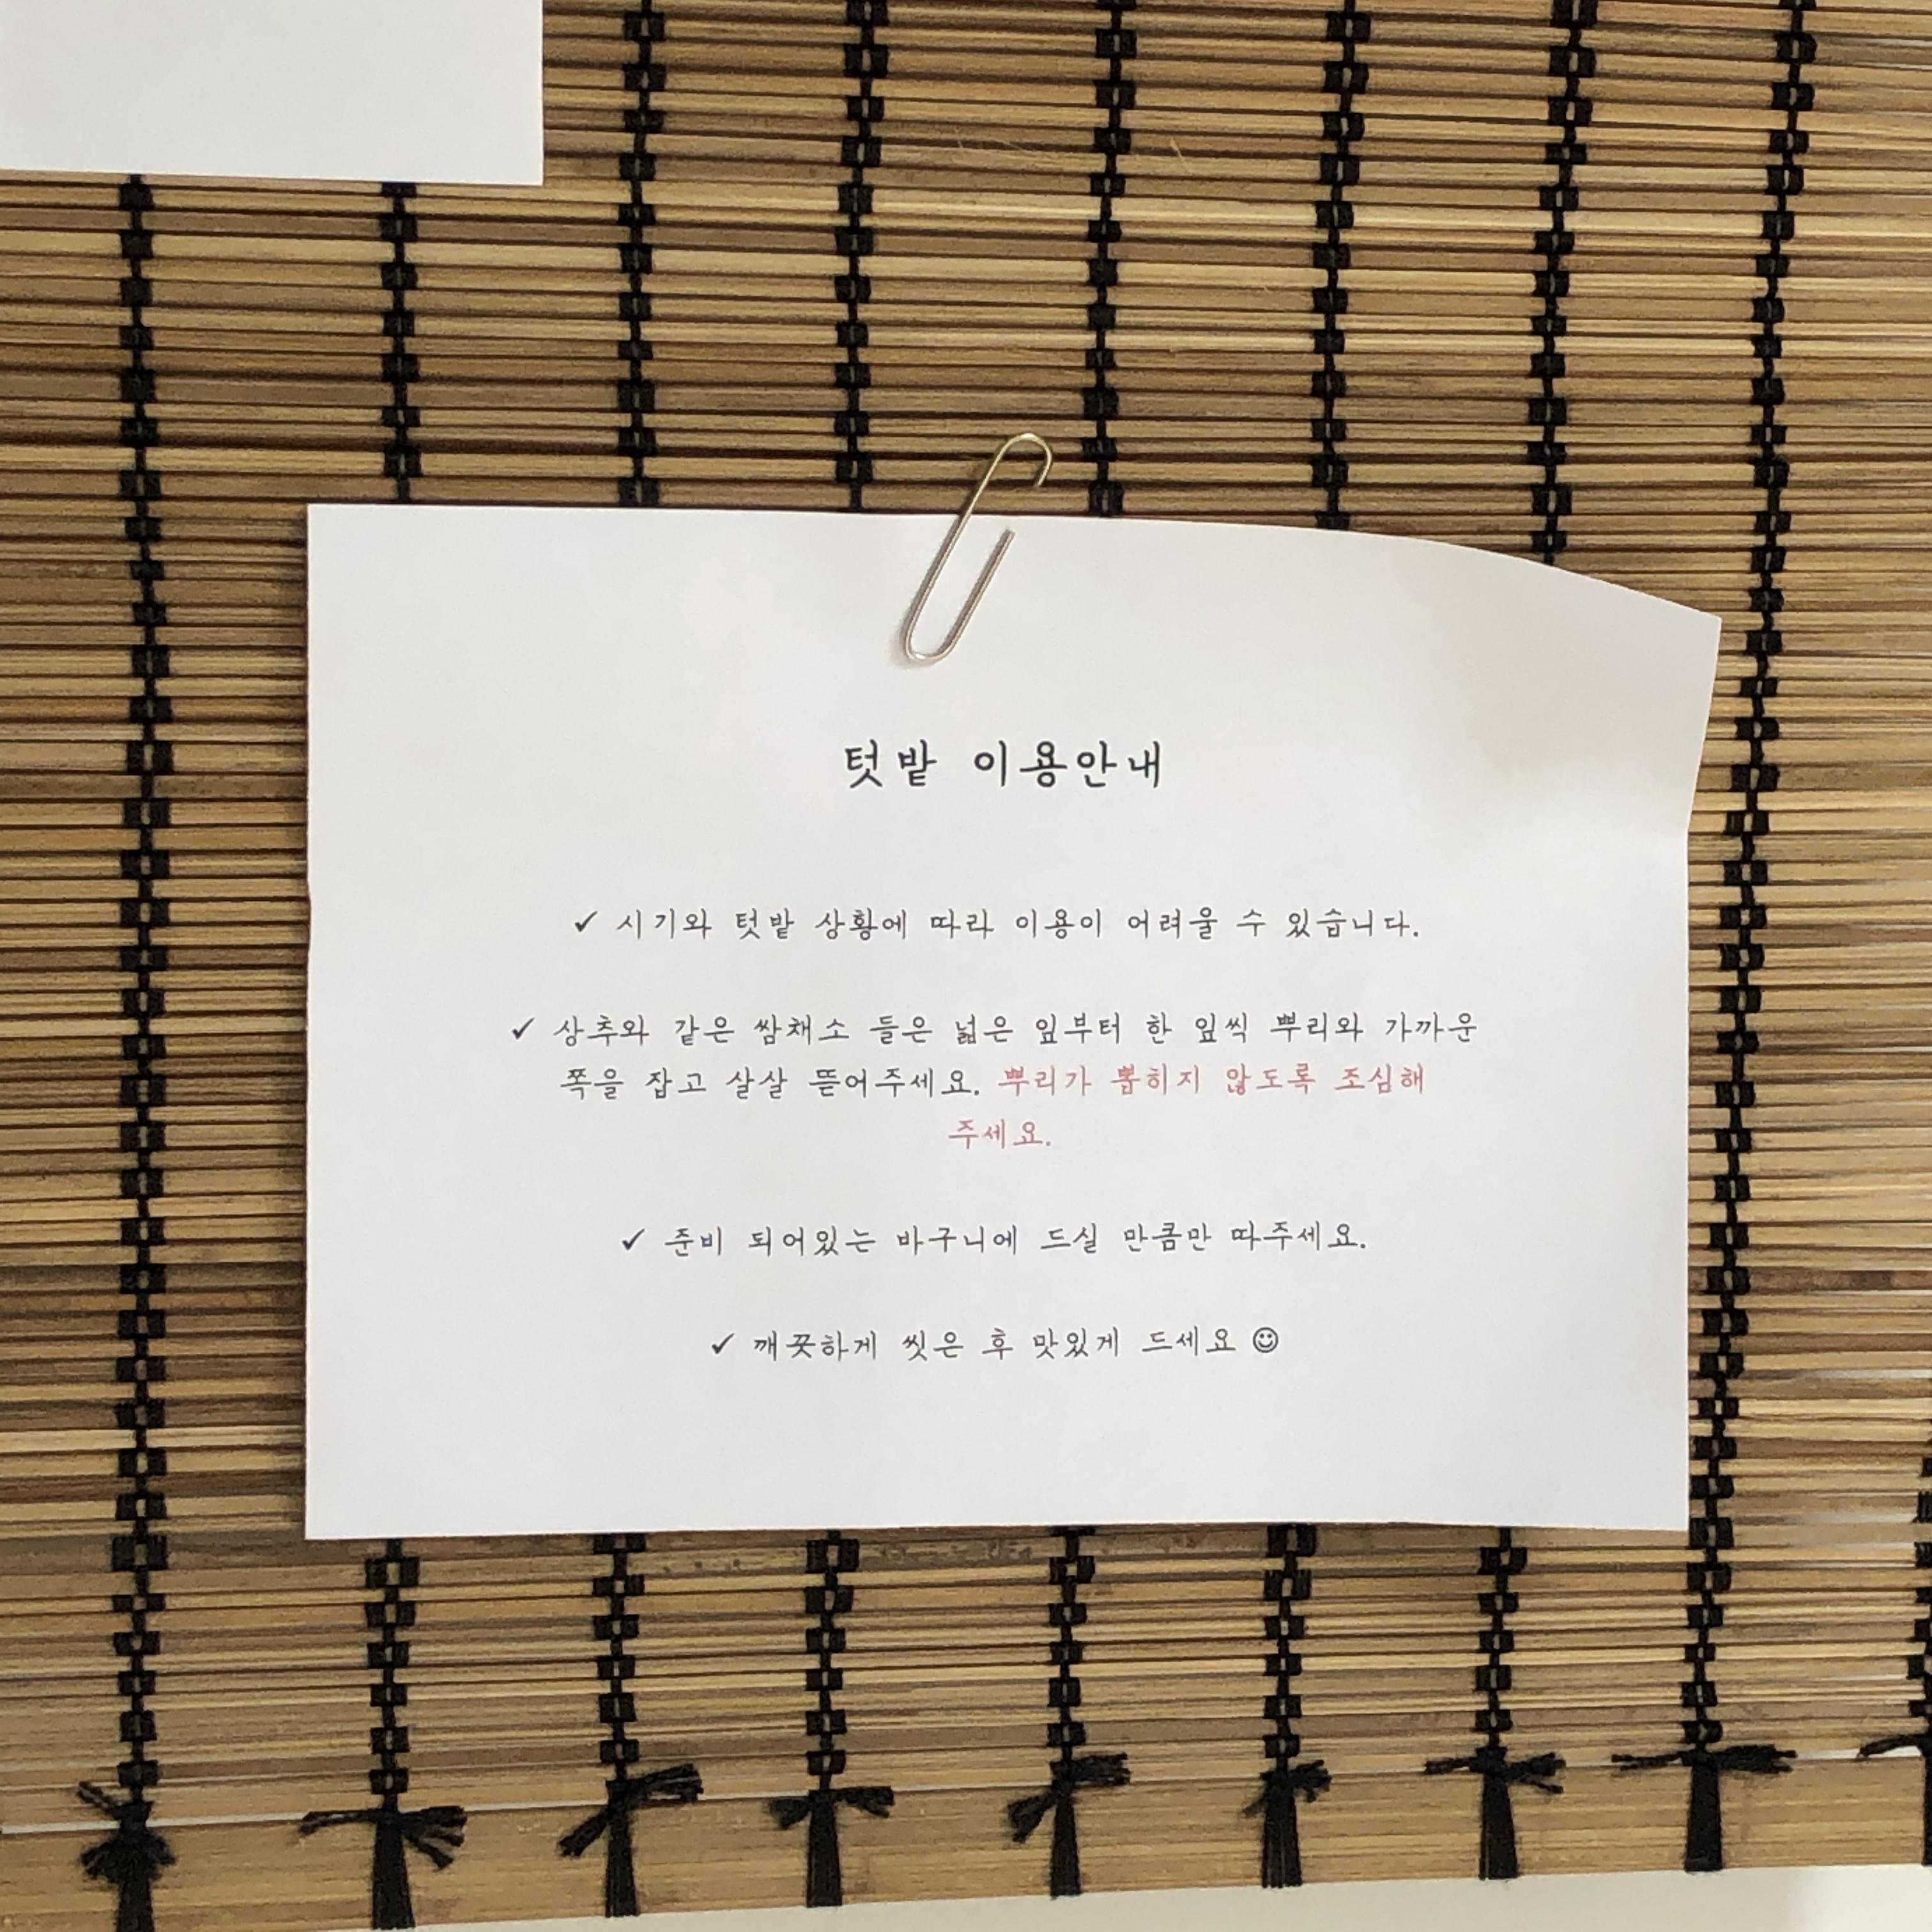 텃밭 이용안내
✓ 시기와 텃밭 상황에 따라 이용이 어려울 수 있습니다.
✓ 상추와 같은 쌈채소 들은 넓은 잎부터 한 잎씩 뿌리와 가까운
쪽을 잡고 살살 뜯어주세요. 뿌리가 뽑히지 않도록 조심해
주세요.
✓ 준비 되어있는 바구니에 드실 만큼만 따주세요.
✓ 깨끗하게 씻은 후 맛있게 드세요 ☺